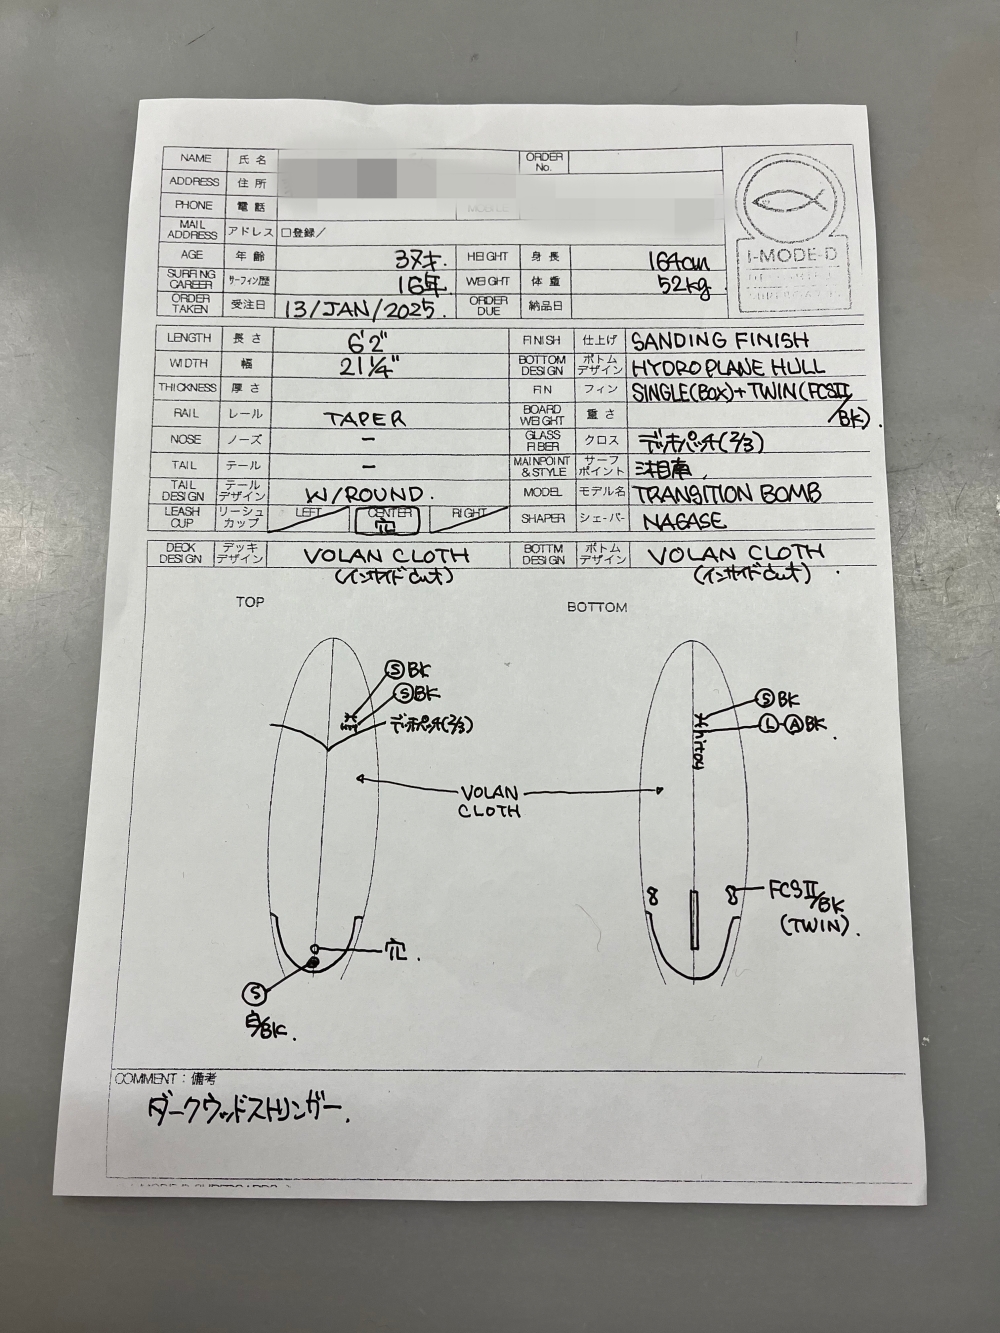 NAME 氏名 ORDER No.
ADDRESS 住所
PHONE 電話 MOBILE
MAIL ADDRESS アドレス □登録/
I-MODE-D
AGE 年齢 37才. HEIGHT 身長 164cm
SURFING CAREER サーフィン歴 16年 WEIGHT 体重 52kg
ORDER TAKEN 受注日 13/JAN/2025. ORDER DUE 納品日
LENGTH 長さ 6'2" FINISH 仕上げ SANDING FINISH
WIDTH 幅 21 1/4" BOTTOM DESIGN ボトムデザイン HYDRO PLANE HULL
THICKNESS 厚さ FIN フィン SINGLE(BOX)+TWIN(FCSII/BK).
RAIL レール TAPER BOARD WEIGHT 重さ
NOSE ノーズ – GLASS FIBER クロス デッキパッチ(2/3)
TAIL テール – MAINPOINT & STYLE サーフポイント 湘南.
TAIL DESIGN テールデザイン W/ROUND. MODEL モデル名 TRANSITION BOMB
LEASH CUP リーシュカップ LEFT CENTER 穴 RIGHT SHAPER シェーパー NAGASE
DECK DESIGN デッキデザイン VOLAN CLOTH BOTTM DESIGN ボトムデザイン VOLAN CLOTH
(インサイドcut) (インサイドcut).
TOP BOTTOM
Ⓢ BK
Ⓢ BK
デッキパッチ(2/3)
Ⓢ BK
Ⓛ-Ⓐ BK.
hitoy
VOLAN CLOTH
FCSII/BK
(TWIN).
穴.
Ⓢ
白/BK.
COMMENT：備考
ダークウッドストリンガー.